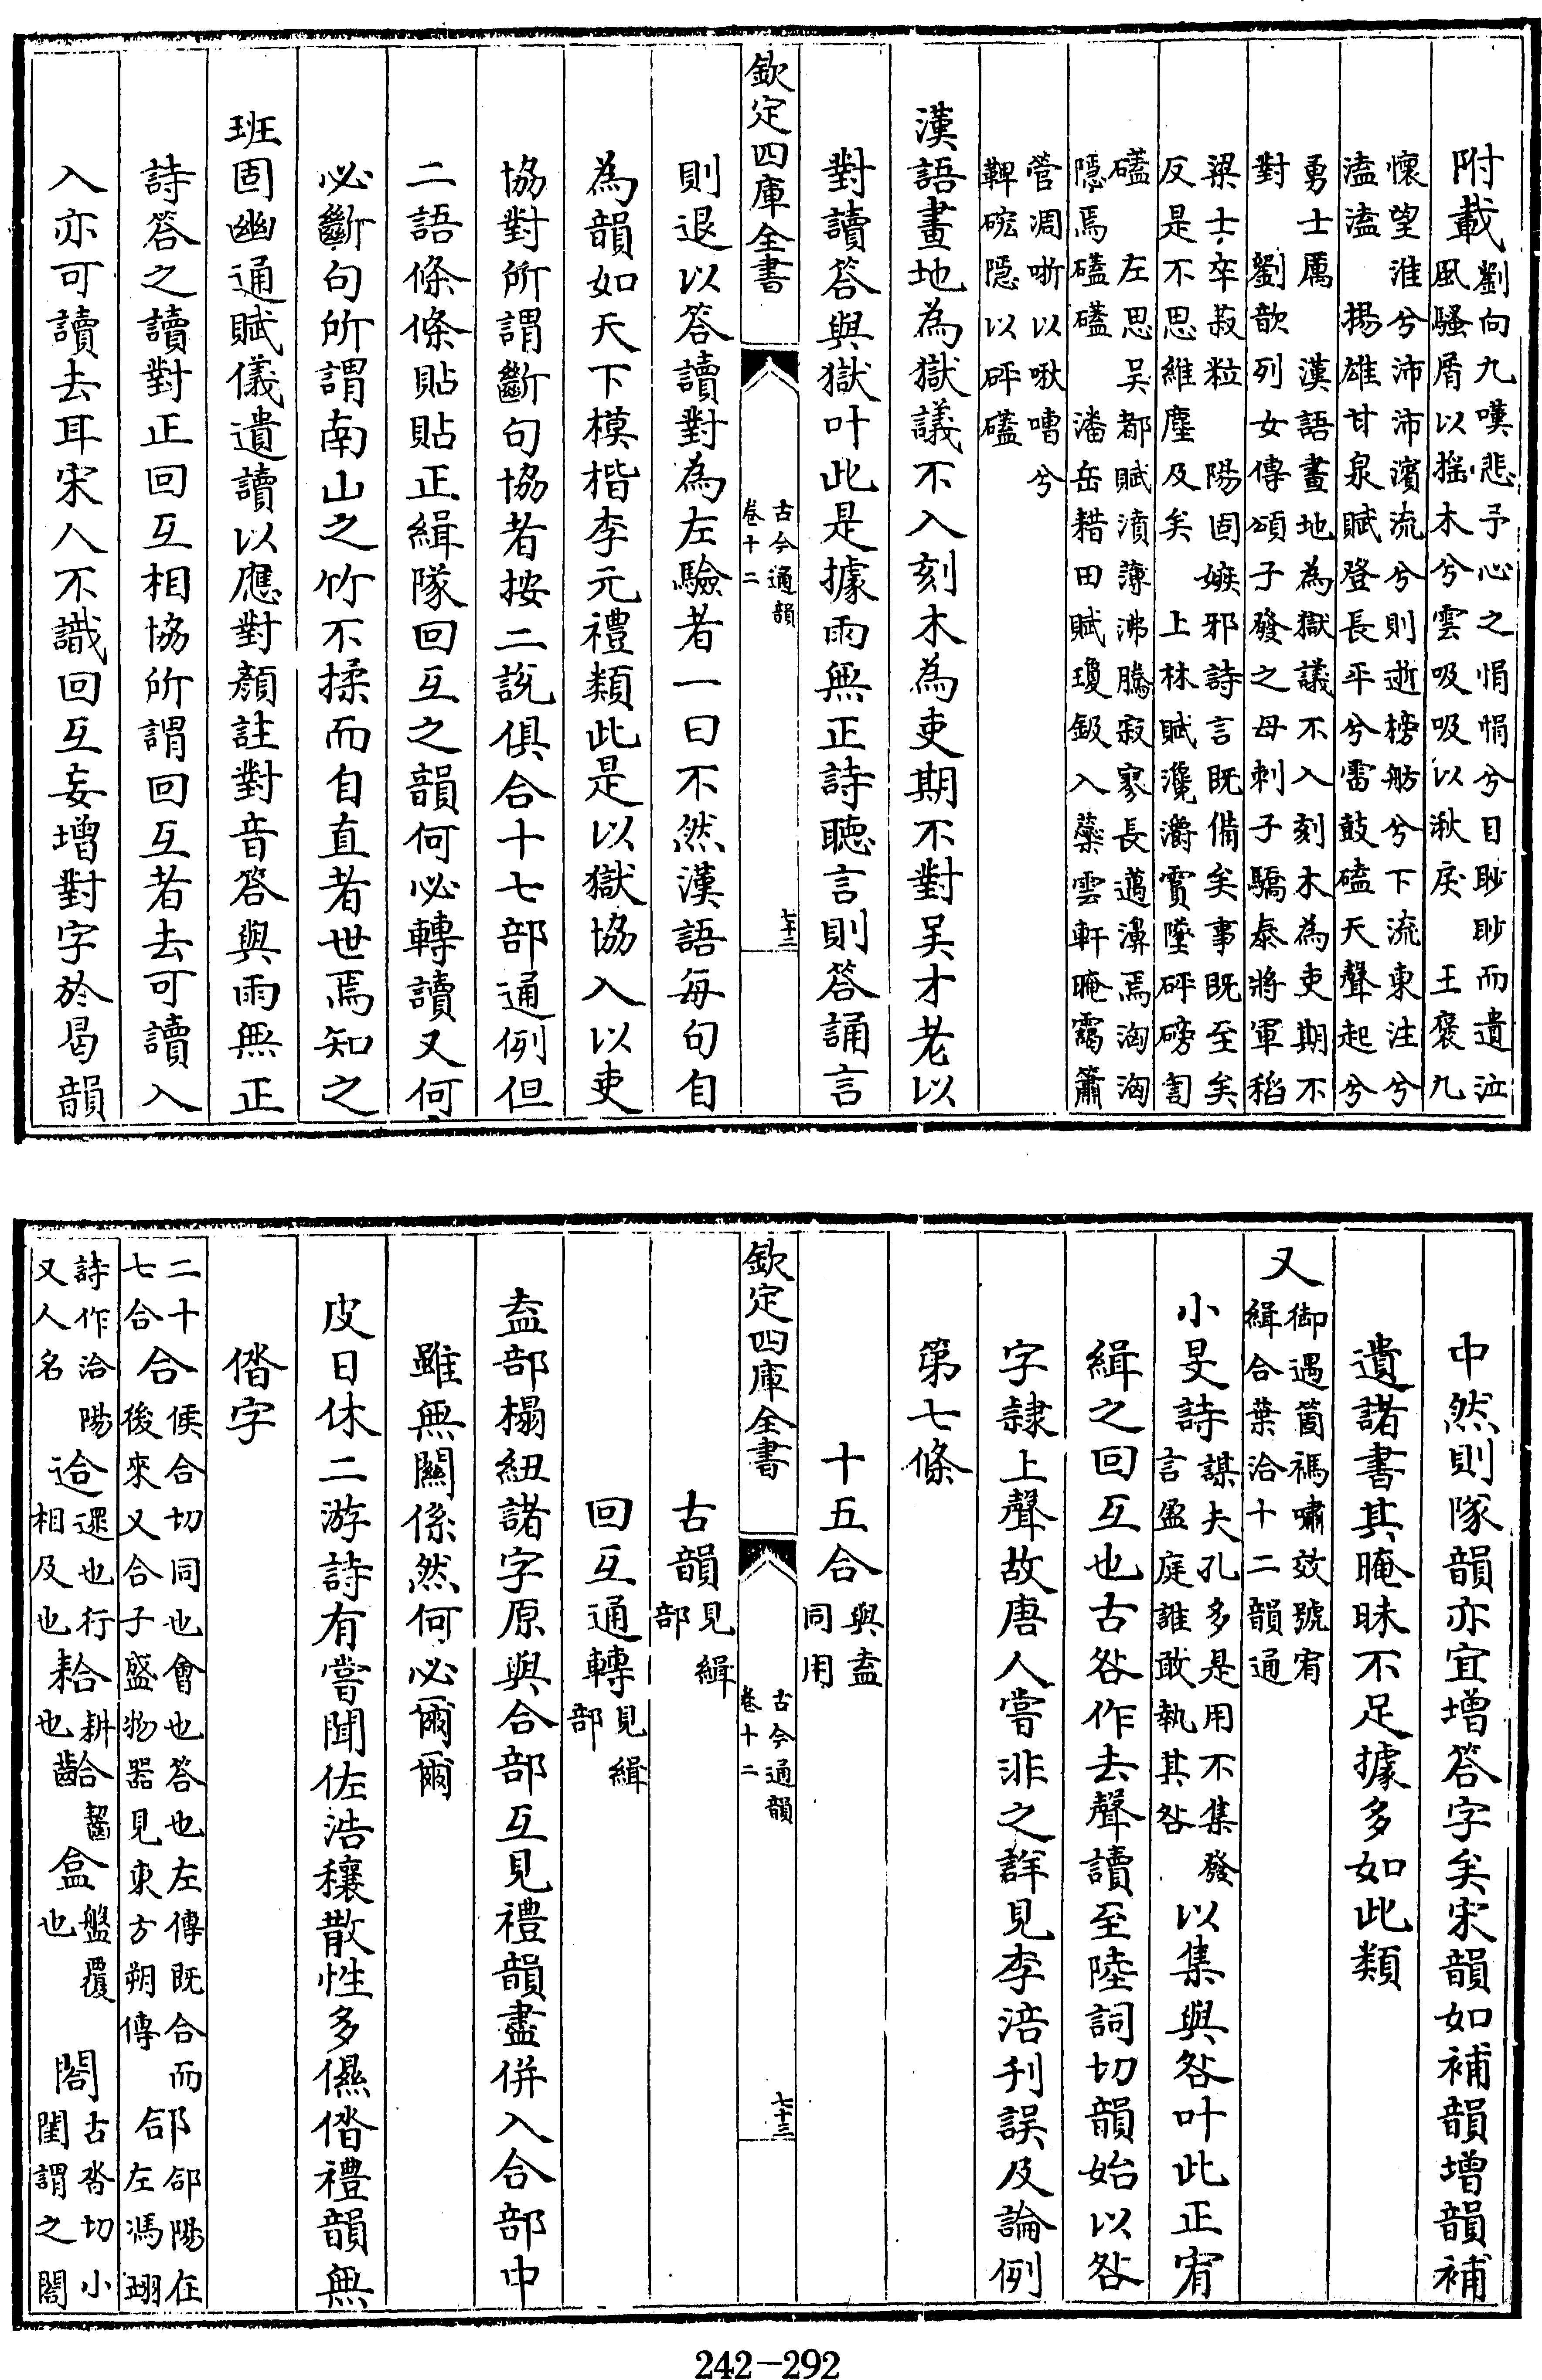 附載劉向九嘆悲予心之悁悁兮目眇眇而遺泣
風騷屑以搖木兮雲吸吸以湫戾　王褒九
懷望淮兮沛沛濱流兮則逝榜舫兮下流東注兮
溘溘　揚雄甘泉賦登長平兮雷鼓磕天聲起兮
勇士厲　漢語畫地為獄議不入刻木為吏期不
對　劉歆列女傳頌子發之母刺子驕泰將軍稻
梁士卒菽粒　陽固嫉邪詩言既備矣事既至矣
反是不思維塵及矣　上林賦瀺灂霣墜砰磅訇
礚　左思吳都賦濆薄沸騰寂寥長邁濞焉洶洶
隱焉礚礚　潘岳耤田賦瓊鈒入蘂雲軒晻靄簫
管凋哳以啾嘈兮
鞞硡隱以砰礚
漢語畫地為獄議不入刻木為吏期不對吴才老以
對讀答與獄叶此是據雨無正詩聽言則答誦言
欽定四庫全書
古今通韻
卷十二
七十二
則退以答讀對為左驗者一曰不然漢語每句自
為韻如天下模楷李元禮類此是以獄協入以吏
協對所謂斷句協者按二說俱合十七部通例但
二語條條貼貼正緝隊回互之韻何必轉讀又何
必斷句所謂南山之竹不揉而自直者世焉知之
班固幽通賦儀遺讀以應對顏註對音答與雨無正
詩答之讀對正回互相協所謂回互者去可讀入
入亦可讀去耳宋人不識回互妄增對字於曷韻
中然則隊韻亦宜增答字矣宋韻如補韻增韻補
遺諸書其晻昧不足據多如此類
又御遇箇禡嘯效號宥
緝合葉洽十二韻通
小旻詩謀夫孔多是用不集發
言盈庭誰敢執其咎以集與咎叶此正宥
緝之回互也古咎作去聲讀至陸詞切韻始以咎
字隷上聲故唐人嘗非之詳見李涪刋誤及論例
第七條
十五合與盍
同用
欽定四庫全書
古今通韻
卷十二
七十三
古韻見緝
部
回互通轉見緝
部
盍部榻紐諸字原與合部互見禮韻盡併入合部中
雖無關係然何必爾爾
皮日休二游詩有嘗聞佐浩穰散性多儑㑫禮韻無
㑫字
二十合侯合切同也會也答也左傳既合而
七合後來又合子盛物器見東方朔傳郃郃陽在
左馮翊
詩作洽陽
又人名迨遝也行
相及也耠耕
也㿴齧盒盤覆
也閤古沓切小
閨謂之閤